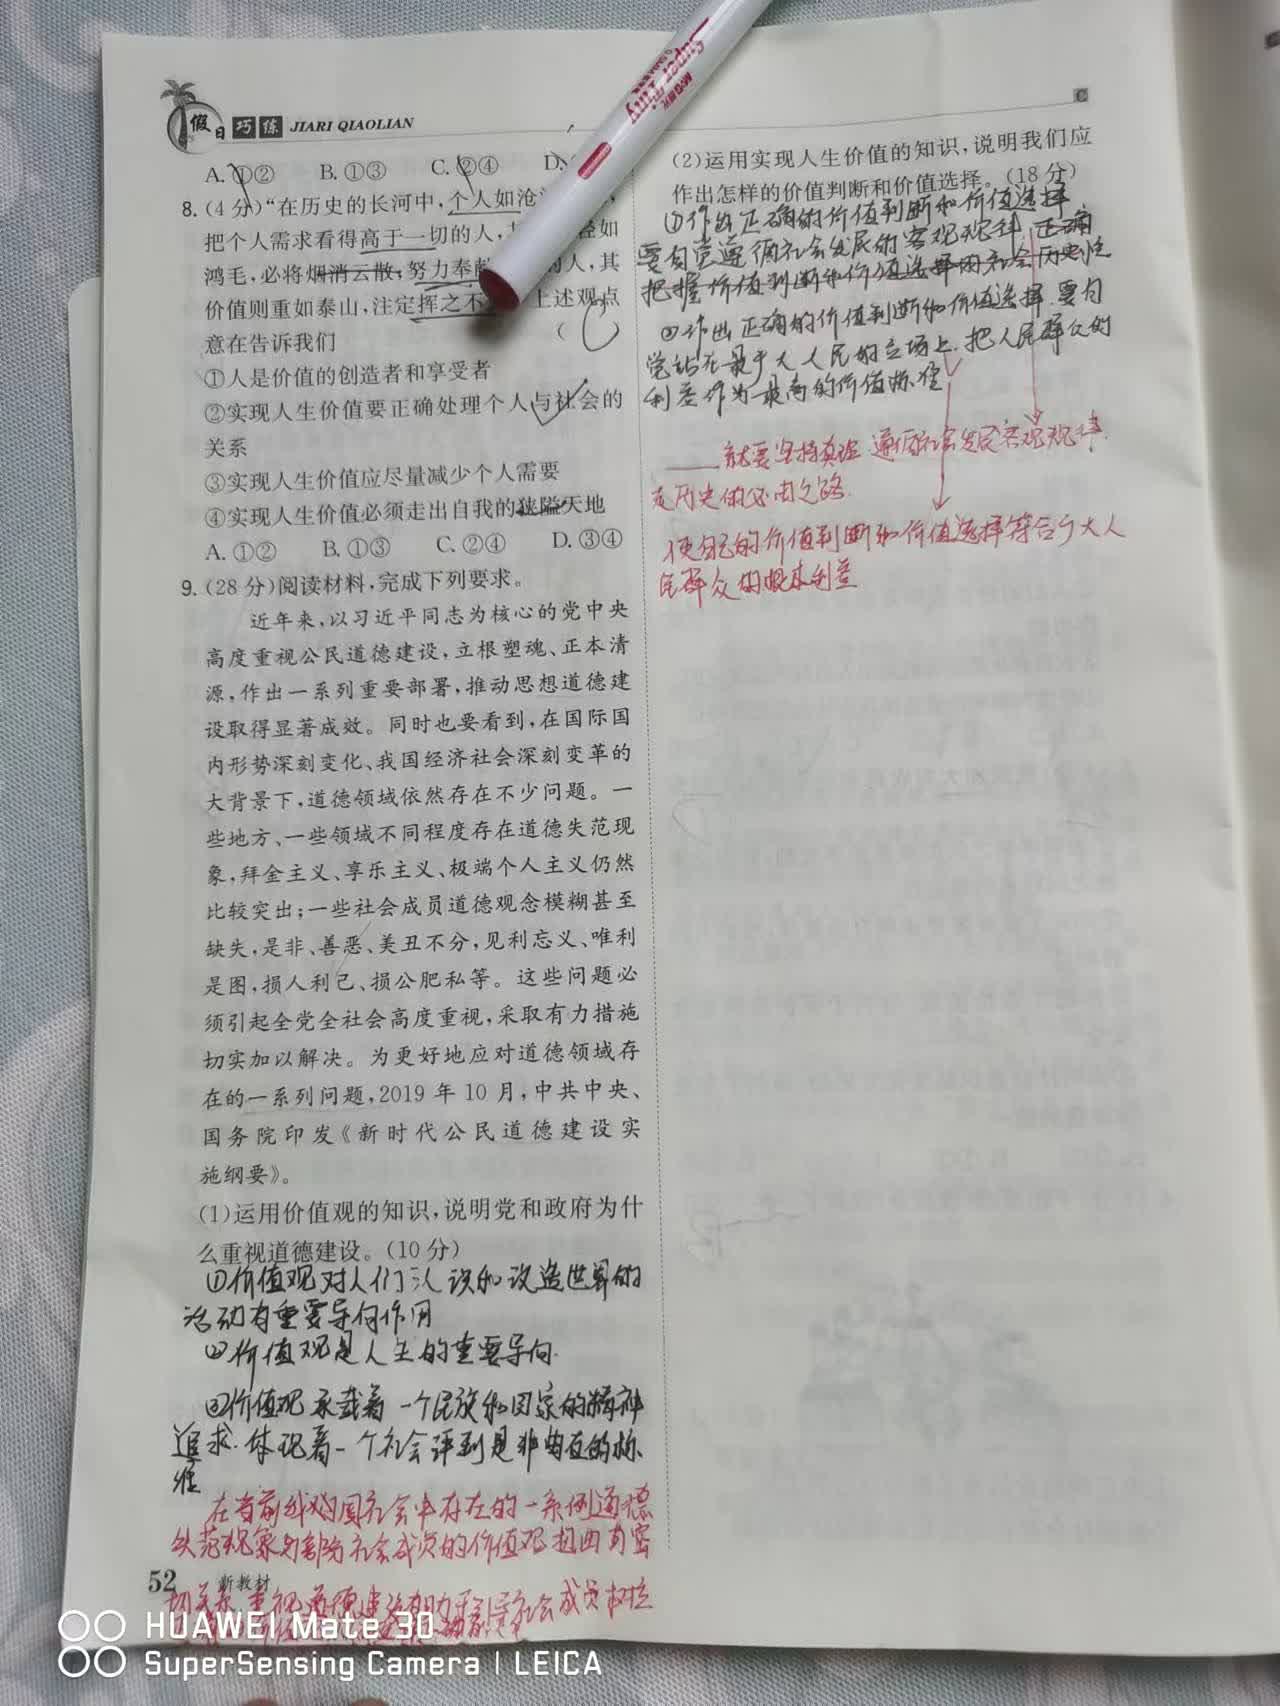 假日巧练 JIARI QIAOLIAN
C
A.①② B.①③ C.②④ D.
8.(4分)“在历史的长河中,个人如沧
把个人需求看得高于一切的人, 轻如
鸿毛,必将烟消云散;努力奉献 的人,其
价值则重如泰山,注定挥之不 上述观点
意在告诉我们 ( C )
①人是价值的创造者和享受者
②实现人生价值要正确处理个人与社会的
关系
③实现人生价值应尽量减少个人需要
④实现人生价值必须走出自我的狭隘天地
A.①② B.①③ C.②④ D.③④
9.(28分)阅读材料,完成下列要求。
近年来,以习近平同志为核心的党中央
高度重视公民道德建设,立根塑魂、正本清
源,作出一系列重要部署,推动思想道德建
设取得显著成效。同时也要看到,在国际国
内形势深刻变化、我国经济社会深刻变革的
大背景下,道德领域依然存在不少问题。一
些地方、一些领域不同程度存在道德失范现
象,拜金主义、享乐主义、极端个人主义仍然
比较突出;一些社会成员道德观念模糊甚至
缺失,是非、善恶、美丑不分,见利忘义、唯利
是图,损人利己、损公肥私等。这些问题必
须引起全党全社会高度重视,采取有力措施
切实加以解决。为更好地应对道德领域存
在的一系列问题,2019年10月,中共中央、
国务院印发《新时代公民道德建设实
施纲要》。
(1)运用价值观的知识,说明党和政府为什
么重视道德建设。(10分)
①价值观对人们认识和改造世界的
活动有重要导向作用
②价值观是人生的重要导向.
③价值观承载着一个民族和国家的精神
追求.体现着一个社会评判是非曲直的标
准
在当前我国社会中存在的一系列道德
失范现象与部分社会成员的价值观扭曲有密
切关系,重视道德建设有助于引导社会成员树立
52 新教材
(2)运用实现人生价值的知识,说明我们应
作出怎样的价值判断和价值选择。(18分)
①作出正确的价值判断和价值选择
要自觉遵循社会发展的客观规律,正确
把握价值判断和价值选择的社会历史性
②作出正确的价值判断和价值选择.要自
觉站在最广大人民的立场上.把人民群众的
利益作为最高的价值标准
就要坚持真理.遵循社会发展客观规律.
走历史的必由之路.
使自己的价值判断和价值选择符合广大人
民群众的根本利益
HUAWEI Mate 30
SuperSensing Camera | LEICA